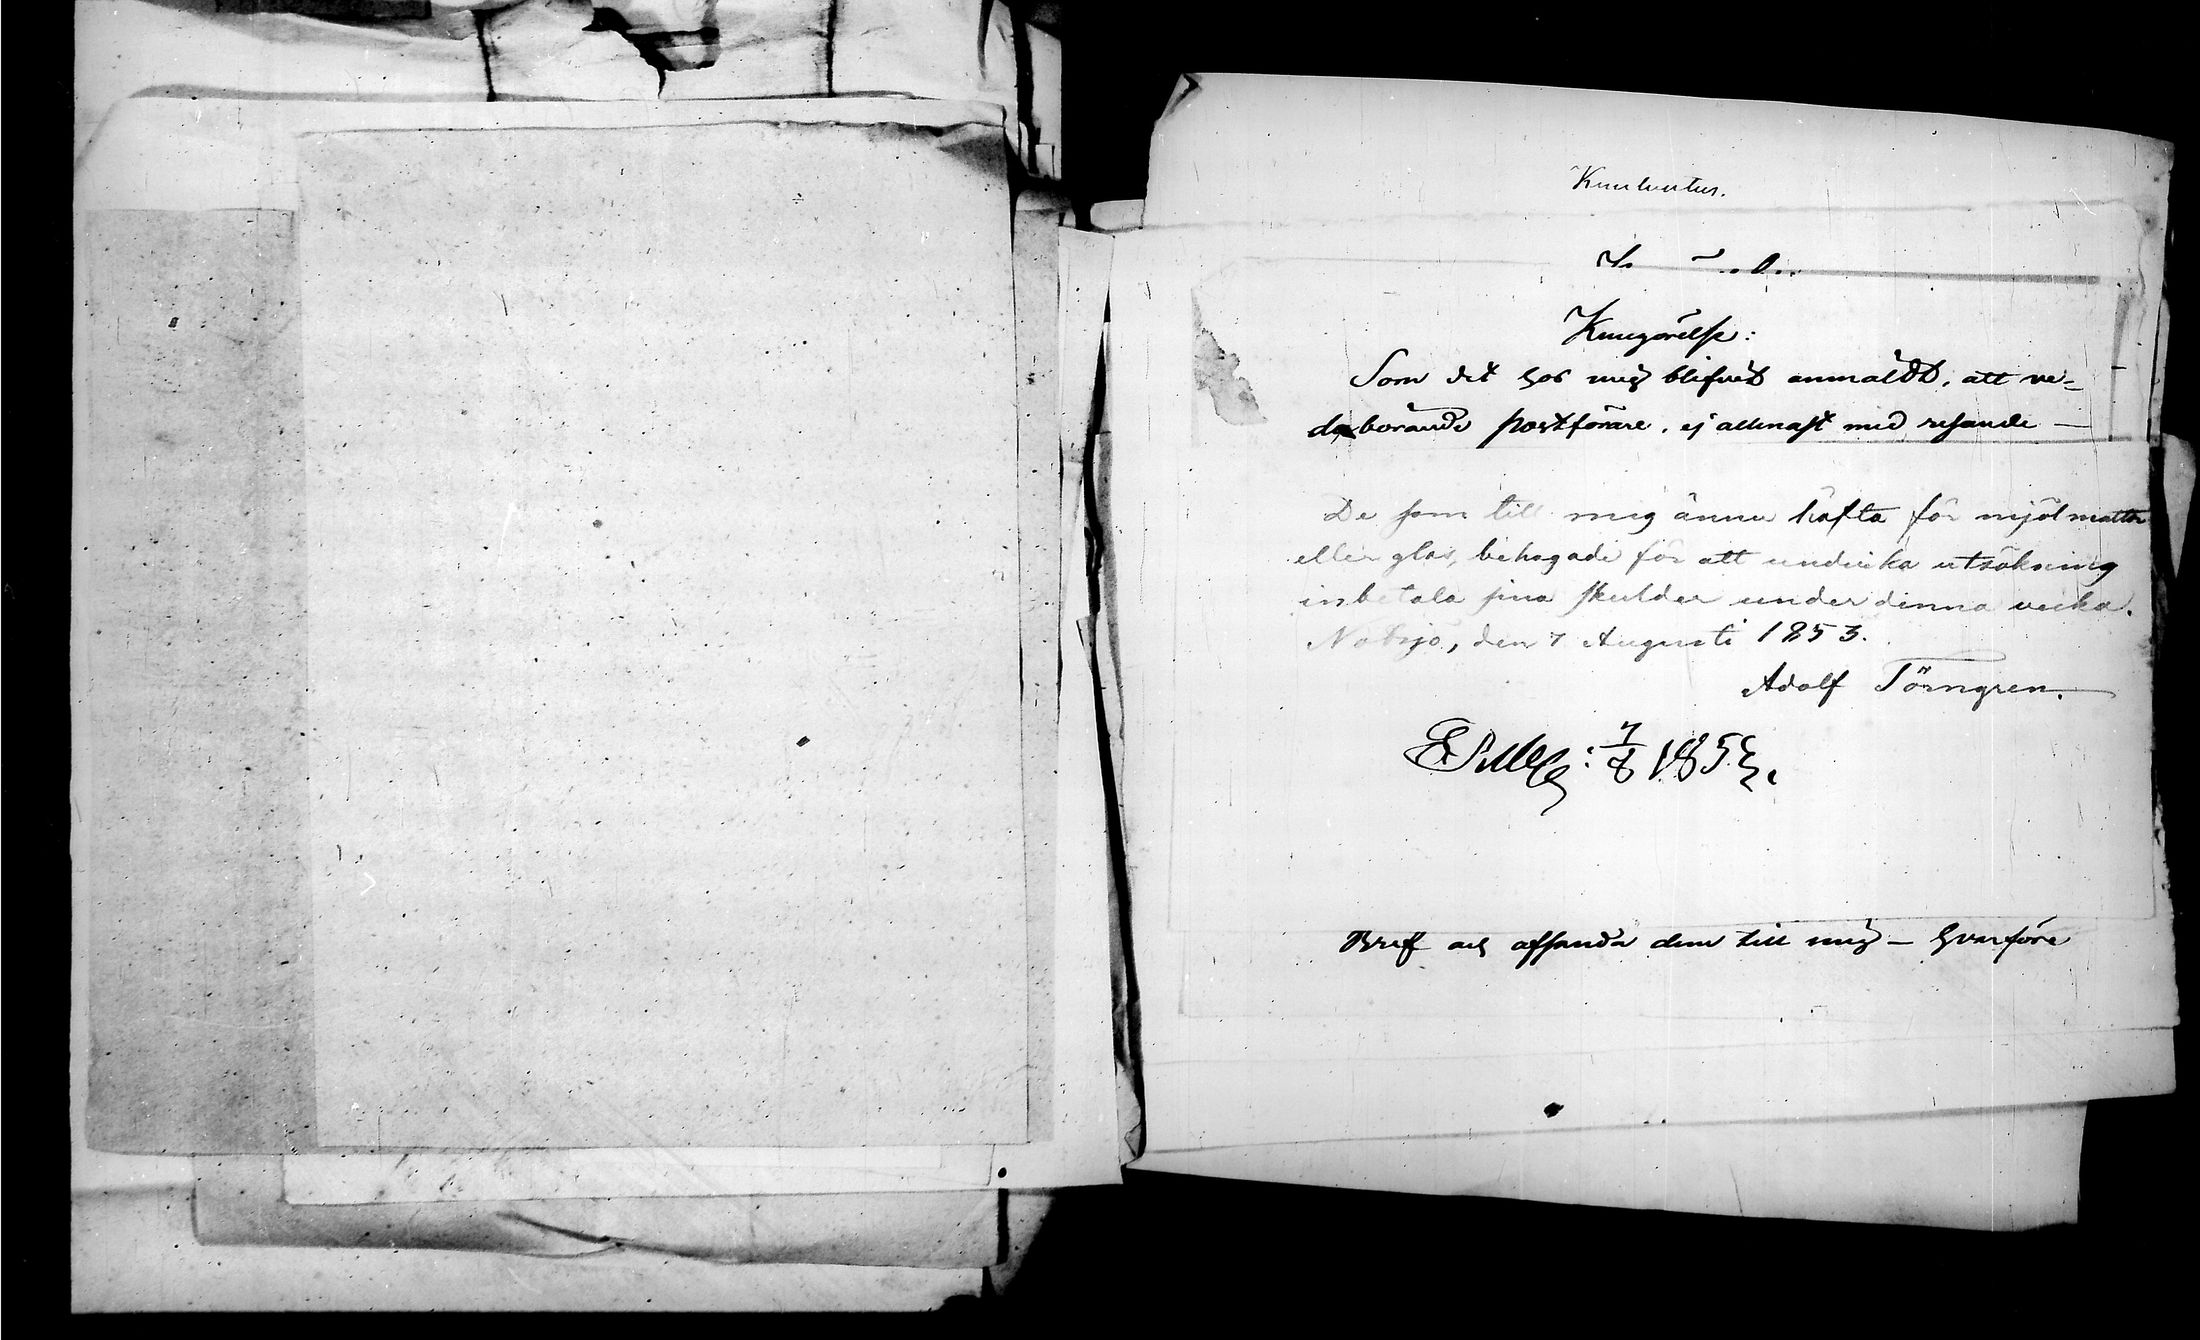 Kuulutus.
Kungörelse:
Som det hos mig blifvit anmäldt, att ve-
derbörande postförare, ej allenast med resande —
De som till mig ännu häfta för mjölmattor
eller glas, behagade för att undvika utsökning
inbetala sina skulder under denna vecka.
Notsjö, den 7 Augusti 1853.
Adolf Törngren.
7/8 1853.
Bref och afsända dem till mig — hvarföre